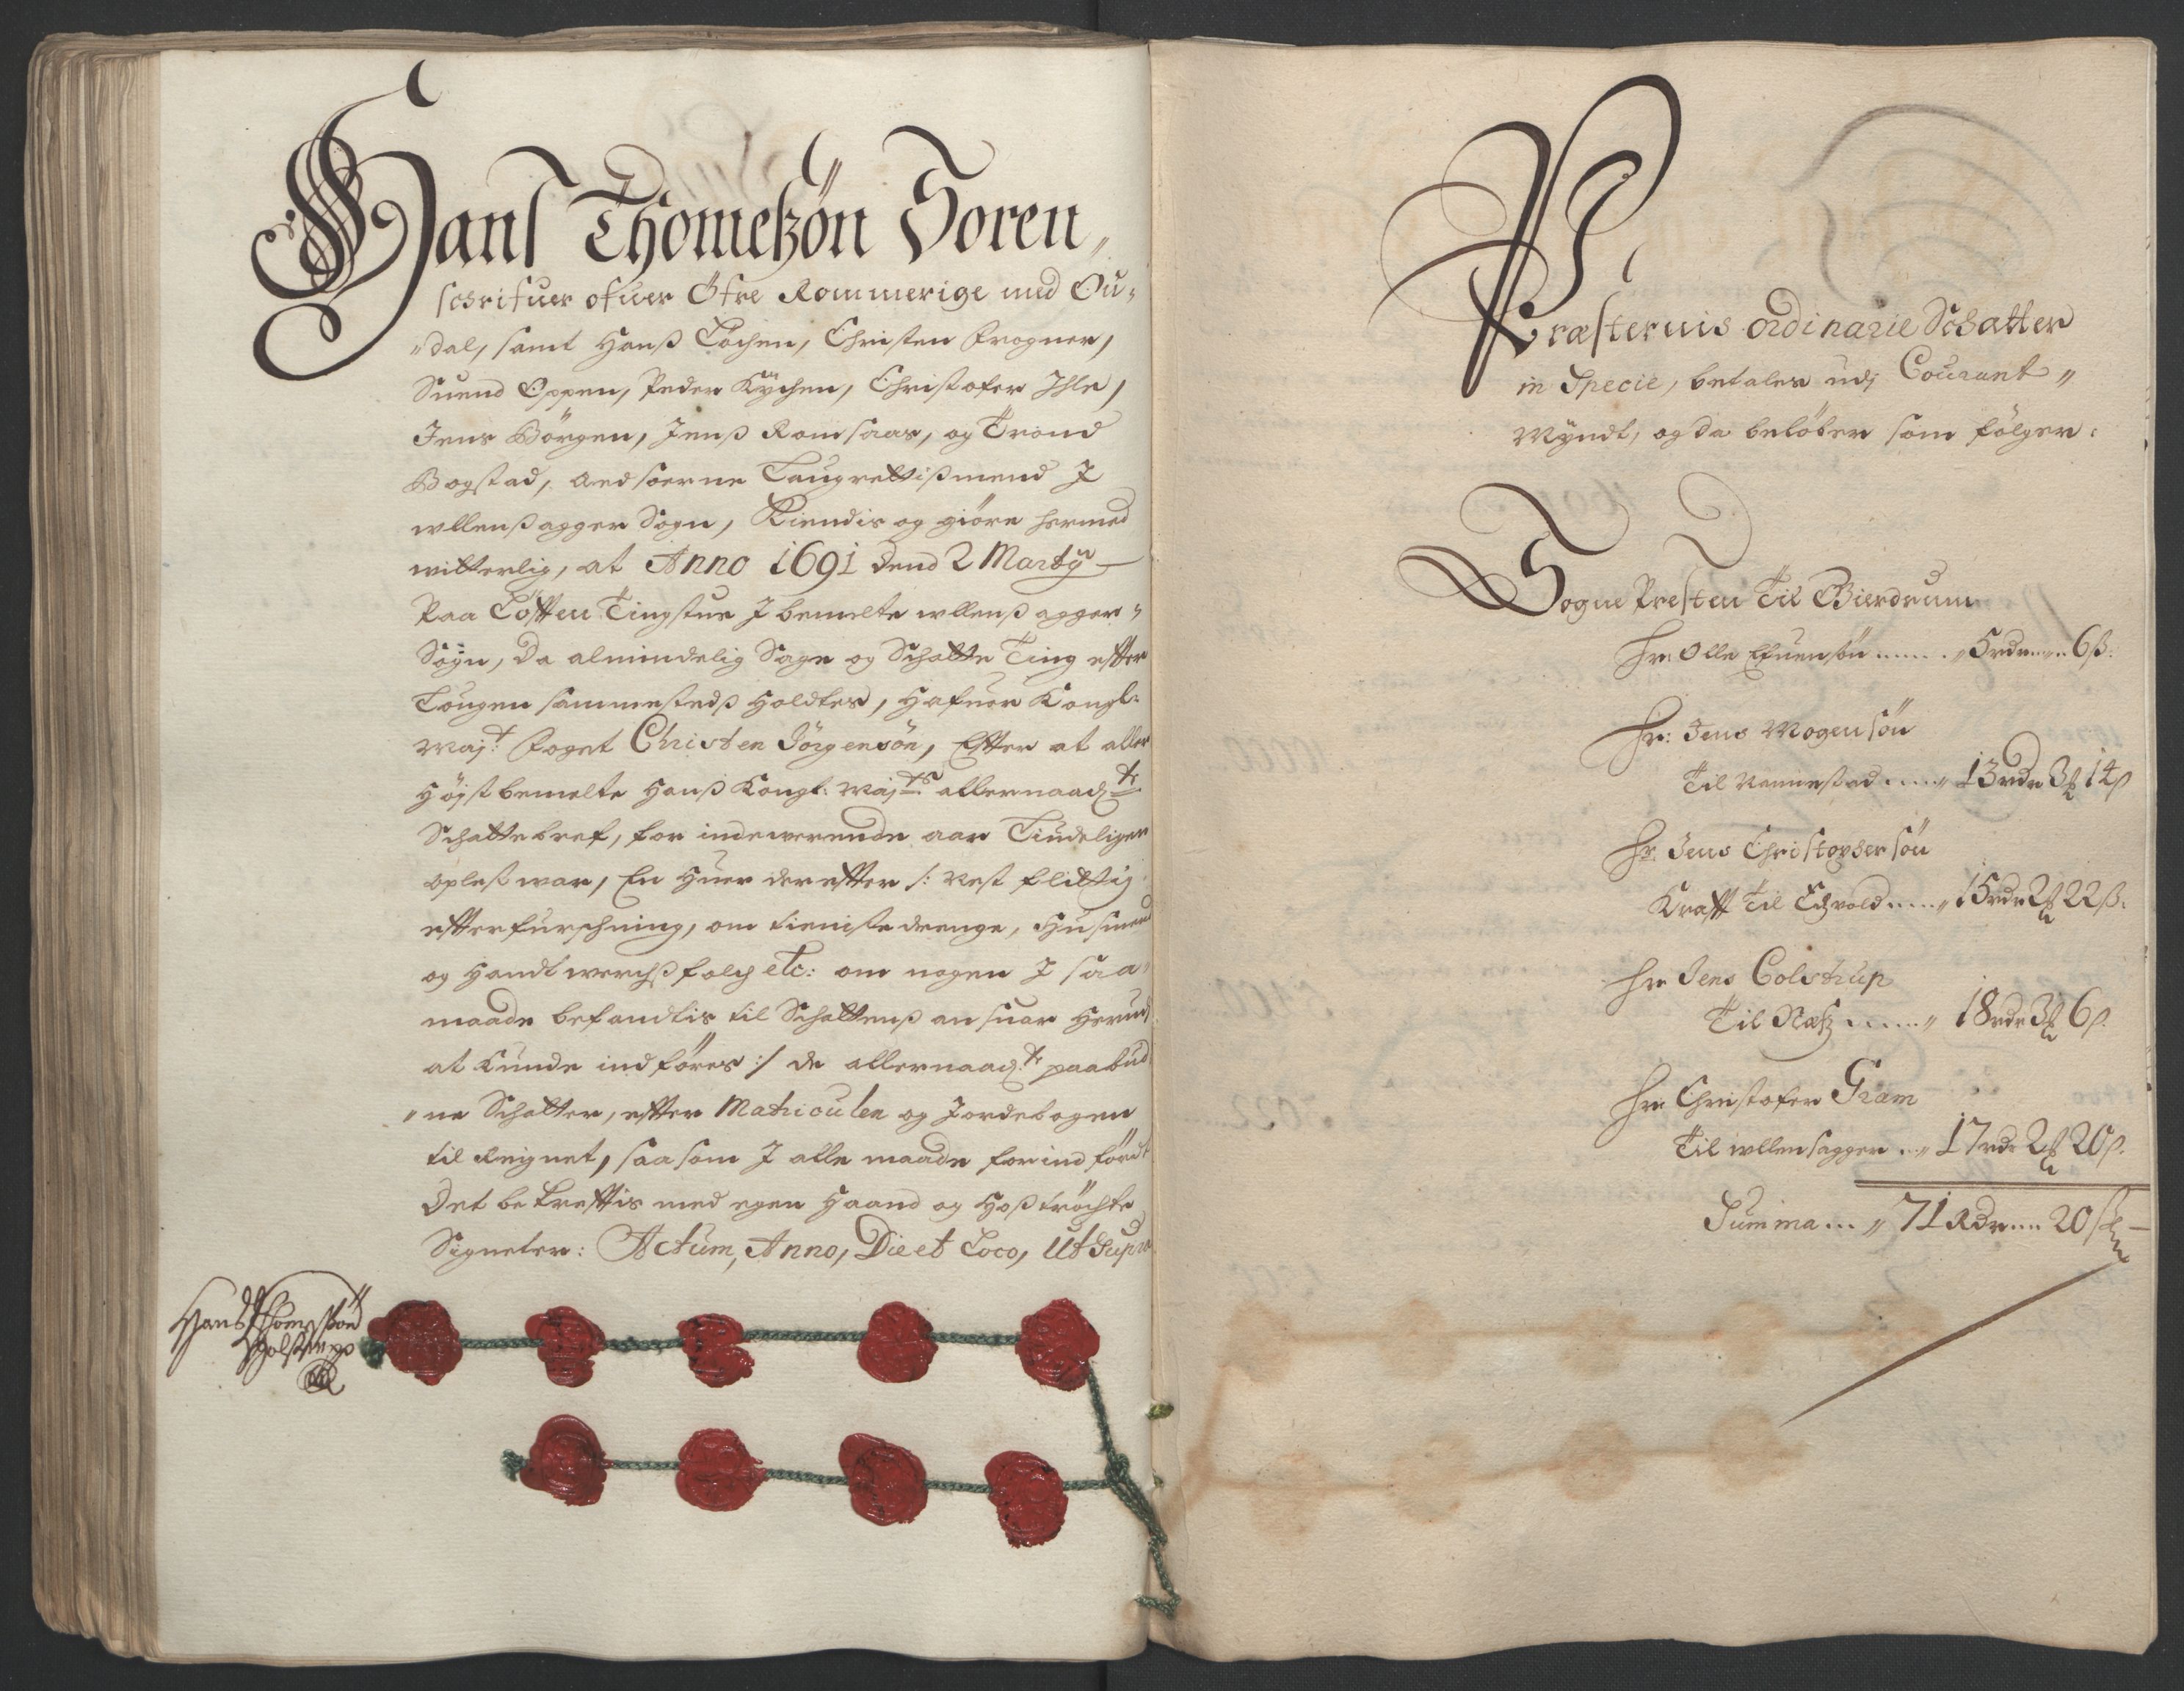 Hans Thomeßön Soren„
schrifuer ofuer Öfre Rommerige med Ou„
„dal, samt Hanß Lochen, Christen Frogner,
Suend Oppen, Peder Kÿchen, Christofer Ihle,
Jens Börgen, Jenß Romsaas, og Trond
Bogstad, Aedsoerne Laugrettißmend I
wllenßagger Sogn, Kiendis og giöre hermed
witterlig, at Anno 1691 dend 2 Martÿ
Paa Löften Tingstue I bemelte wllenß agger„
Sogn, da almindelig Sage og Schatte Ting efter
Lougen sammestedß holdtes, Hafuer Kongl:
Maj:t Foget Christen Jörgensön, Efter at aller
Höjstbemelte Hanß Kongl: Maj:ts allernaad:te
Schattebref, for indewerende aar Tiudeligen
oplest war, En Huer derefter /: Nest flittig
efterfurschning, om tieniste drenge, Husmend
og Handtwerchßfolch etc: om nogen I saa„
maade befandtis til Schattenß ansuar herudj
at kunde indföres :/ de allernaad:te paabud
„ne Schatter, efter Matriculen og Jordebogen
til Reignet, saasom I alle maade for indfördt
Det bekreftis med egen Haand og Hoßtröchte
Signeter: Actum, Anno, Die et Loco, Ut Supra
Hans Thomeßön
Holstrup
Præsternis ordinarie Schatter
in Specie, betales udj Courant„
Myndt, og da belöber som fölger:
Sogne Presten Til Gierdrum
Hr: Olle Efuensön ...... „ 5 rdr „ „ 6 ß:
Hr: Jens Mogensön
Til Nannestad ..... „ 13 rdr 3 ƶ 14 ß
Hr: Jens Christophersön
Kraft Til Edzvold ..... „ 15 rdr 2 ƶ 22 ß:
Hr Jens Colstrup
Til Neß ..... „ 18 rdr 3 ƶ 6 ß:
Hr: Christofer Gram
Til wllensagger .. „ 17 rdr 2 ƶ 20 ß:
Summa ... „ 71 Rdr .... 20 ß